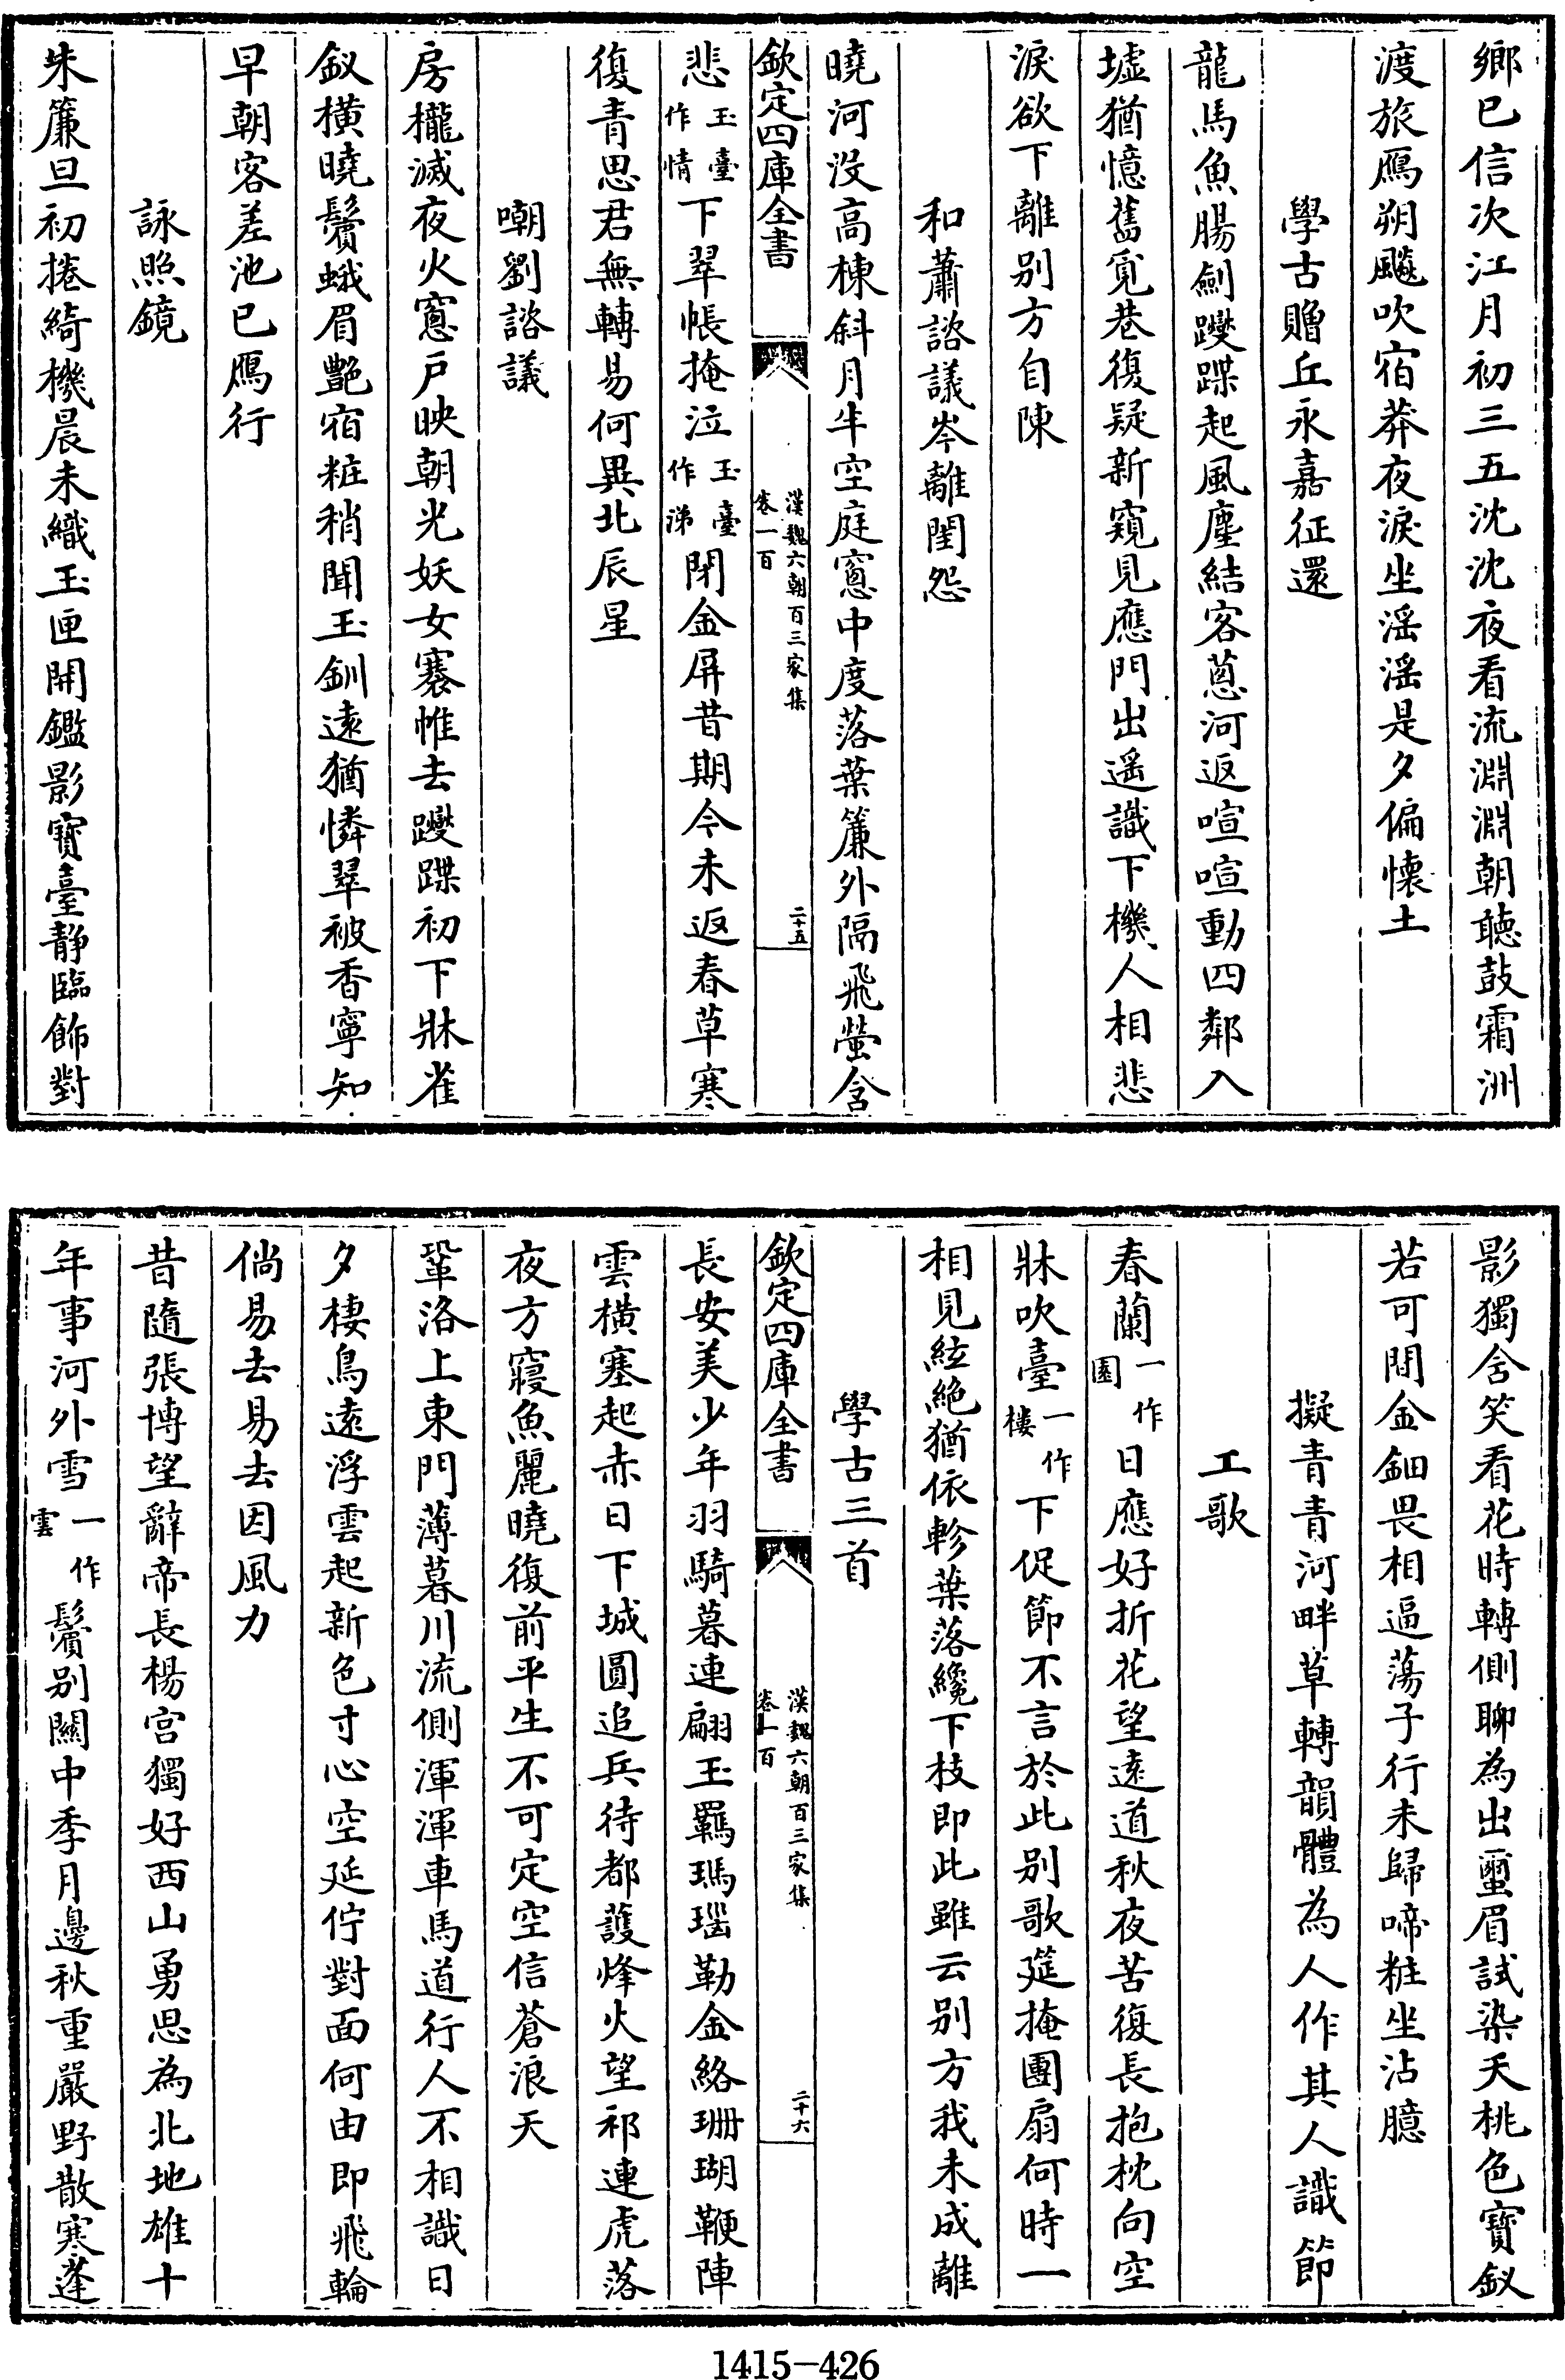 鄉已信次江月初三五沈沈夜看流淵淵朝聽鼓霜洲
渡旅鴈朔飇吹宿莽夜淚坐滛滛是夕偏懐土
學古贈丘永嘉征還
龍馬魚腸劍躞蹀起風塵結客蔥河返喧喧動四鄰入
墟猶憶舊覓巷復疑新窺見應門出遥識下機人相悲
淚欲下離别方自陳
和蕭諮議岑離閨怨
曉河没高棟斜月半空庭窻中度落葉簾外隔飛螢含
欽定四庫全書
漢魏六朝百三家集
卷一百
二十五
悲玉臺作情下翠帳掩泣玉臺作涕閉金屏昔期今未返春草寒
復青思君無轉易何異北辰星
嘲劉諮議
房櫳滅夜火窻戸映朝光妖女褰帷去躞蹀初下牀雀
釵横曉鬢蛾眉艶宿粧稍聞玉釧逺猶憐翠被香寧知
早朝客差池已鴈行
詠照鏡
朱簾旦初捲綺機晨未織玉匣開鑑影寳臺静臨飾對
影獨含笑看花時轉側聊為出璽眉試染夭桃色寳釵
若可間金鈿畏相逼蕩子行未歸啼粧坐沾臆
擬青青河畔草轉韻體為人作其人識節
工歌
春蘭一作園日應好折花望遠道秋夜苦復長抱枕向空
牀吹臺一作樓下促節不言於此别歌筵掩團扇何時一
相見絃絶猶依軫葉落纔下枝即此雖云别方我未成離
學古三首
欽定四庫全書
漢魏六朝百三家集
卷一百
二十六
長安美少年羽騎暮連翩玉羈瑪瑙勒金絡珊瑚鞭陣
雲横塞起赤日下城圓追兵待都護烽火望祁連虎落
夜方寢魚麗曉復前平生不可定空信蒼浪天
鞏洛上東門薄暮川流側渾渾車馬道行人不相識日
夕棲鳥逺浮雲起新色寸心空延佇對面何由即飛輪
倘易去易去因風力
昔隨張博望辭帝長楊宫獨好西山勇思為北地雄十
年事河外雪一作雲鬢别關中季月邊秋重嚴野散寒蓬
1415-426